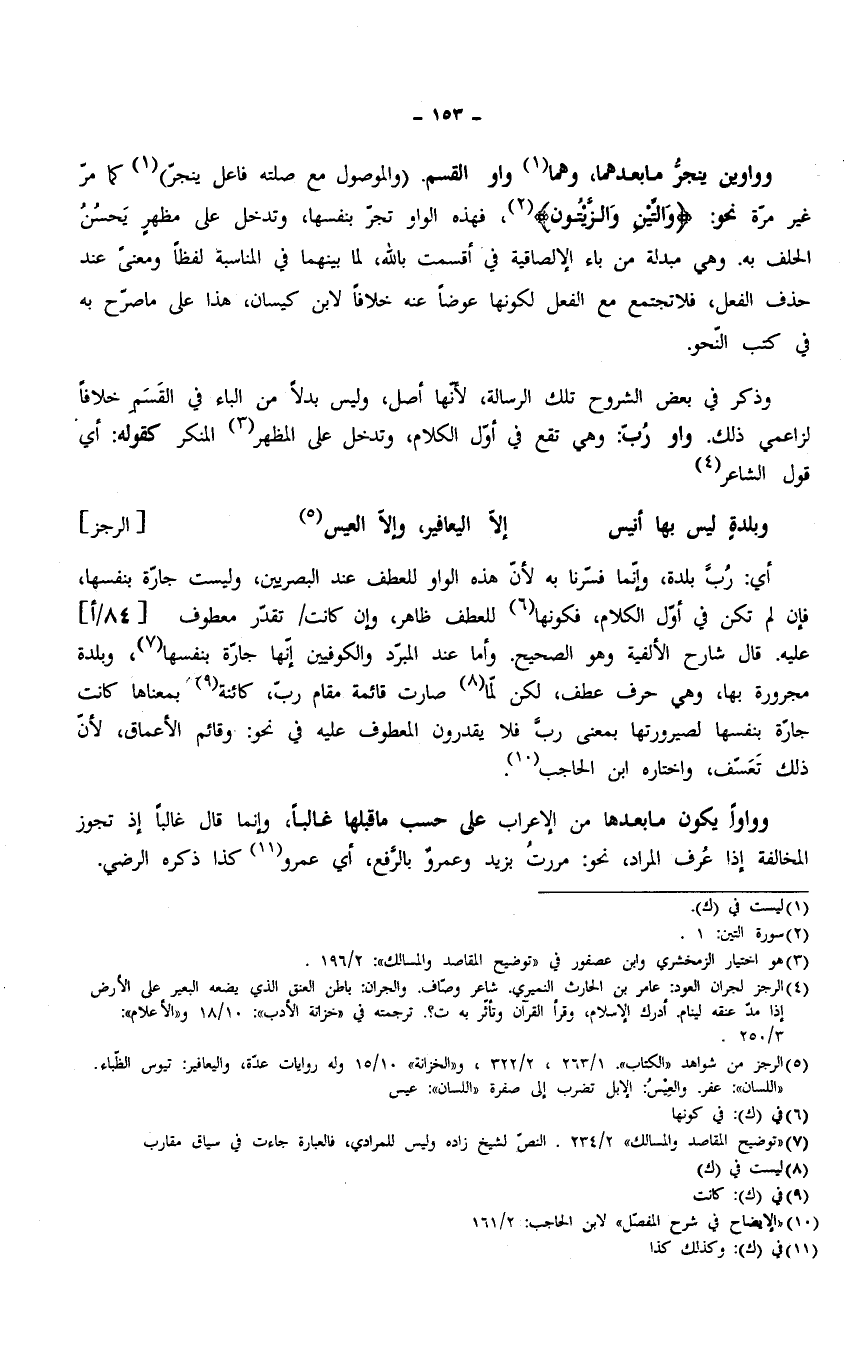 - ١٥٣ -
وواوين ينجرُّ مـابعـدهما، وهما(١) واو القسم. (والموصول مع صلته فاعل ينجرّ)(١) كما مرّ
غير مرّة نحو: ﴿وَالتِّينِ وَالـزَّيْتُـونِ﴾(٢)، فهذه الواو تجرّ بنفسها، وتدخل على مظهرٍ يَحسُنُ
الحلف به. وهي مبدلة من باء الإلصاقية في أقسمت بالله، لما بينهما في المناسبة لفظاً ومعنىً عند
حذف الفعل، فلاتجتمع مع الفعل لكونها عوضاً عنه خلافاً لابن كيسان، هذا على ماصرّح به
في كتب النّحو.
وذكر في بعض الشروح تلك الرسالة، لأنّها أصل، وليس بدلاً من الباء في القَسَمِ خلافاً
لزاعمي ذلك. واو رُبّ: وهي تقع في أوّل الكلام، وتدخل على المظهر(٣) المنكر كقوله: أي
قول الشاعر(٤)
وبلدةٍ ليس بها أنيس إلاّ اليعافير، وإلاّ العيس(٥) [الرجز]
أي: رُبَّ بلدة، وإنّما فسّرنا به لأنّ هذه الواو للعطف عند البصريين، وليست جارّة بنفسها،
فإن لم تكن في أوّل الكلام، فكونها(٦) للعطف ظاهر، وإن كانت/ تقدّر معطوف [٨٤/أ]
عليه. قال شارح الألفية وهو الصحيح. وأما عند المبرّد والكوفيين إنّها جارّة بنفسها(٧)، وبلدة
مجرورة بها، وهي حرف عطف، لكن لمّا(٨) صارت قائمة مقام ربّ، كائنة(٩) بمعناها كانت
جارّة بنفسها لصيرورتها بمعنى ربَّ فلا يقدرون المعطوف عليه في نحو: وقائم الأعماق، لأنّ
ذلك تَعَسّف، واختاره ابن الحاجب(١٠).
وواواً يكون مـابعـدها من الإعراب على حسب ماقبلها غـالبـاً، وإنما قال غالباً إذ تجوز
المخالفة إذا عُرف المراد، نحو: مررتُ بزيد وعمروٌ بالرَّفع، أي عمرو(١١) كذا ذكره الرضي.
(١) ليست في (ك).
(٢) سورة التين: ١ .
(٣) هو اختيار الزمخشري وابن عصفور في «توضيح المقاصد والمسالك»: ١٩٦/٢ .
(٤) الرجز لجران العود: عامر بن الحارث النميري. شاعر وصّاف. والجران: باطن العنق الذي يضعه البعير على الأرض
إذا مدّ عنقه لينام. أدرك الإسلام، وقرأ القرآن وتأثّر به ت؟. ترجمته في «خزانة الأدب»: ١٨/١٠ و«الأعلام»:
٢٥٠/٣ .
(٥) الرجز من شواهد «الكتاب». ٢٦٣/١ ، ٣٢٢/٢ ، و«الخزانة» ١٥/١٠ وله روايات عدّة، واليعافير: تيوس الظّباء.
«اللسان»: عفر. والعِيْسُ: الإبل تضرب إلى صفرة «اللسان»: عيس
(٦) في (ك): في كونها
(٧) «توضيح المقاصد والمسالك» ٢٣٤/٢ . النصّ لشيخ زاده وليس للمرادي، فالعبارة جاءت في سياق مقارب
(٨) ليست في (ك)
(٩) في (ك): كانت
(١٠) «الإيضاح في شرح المفصّل» لابن الحاجب: ١٦١/٢
(١١) في (ك): وكذلك كذا